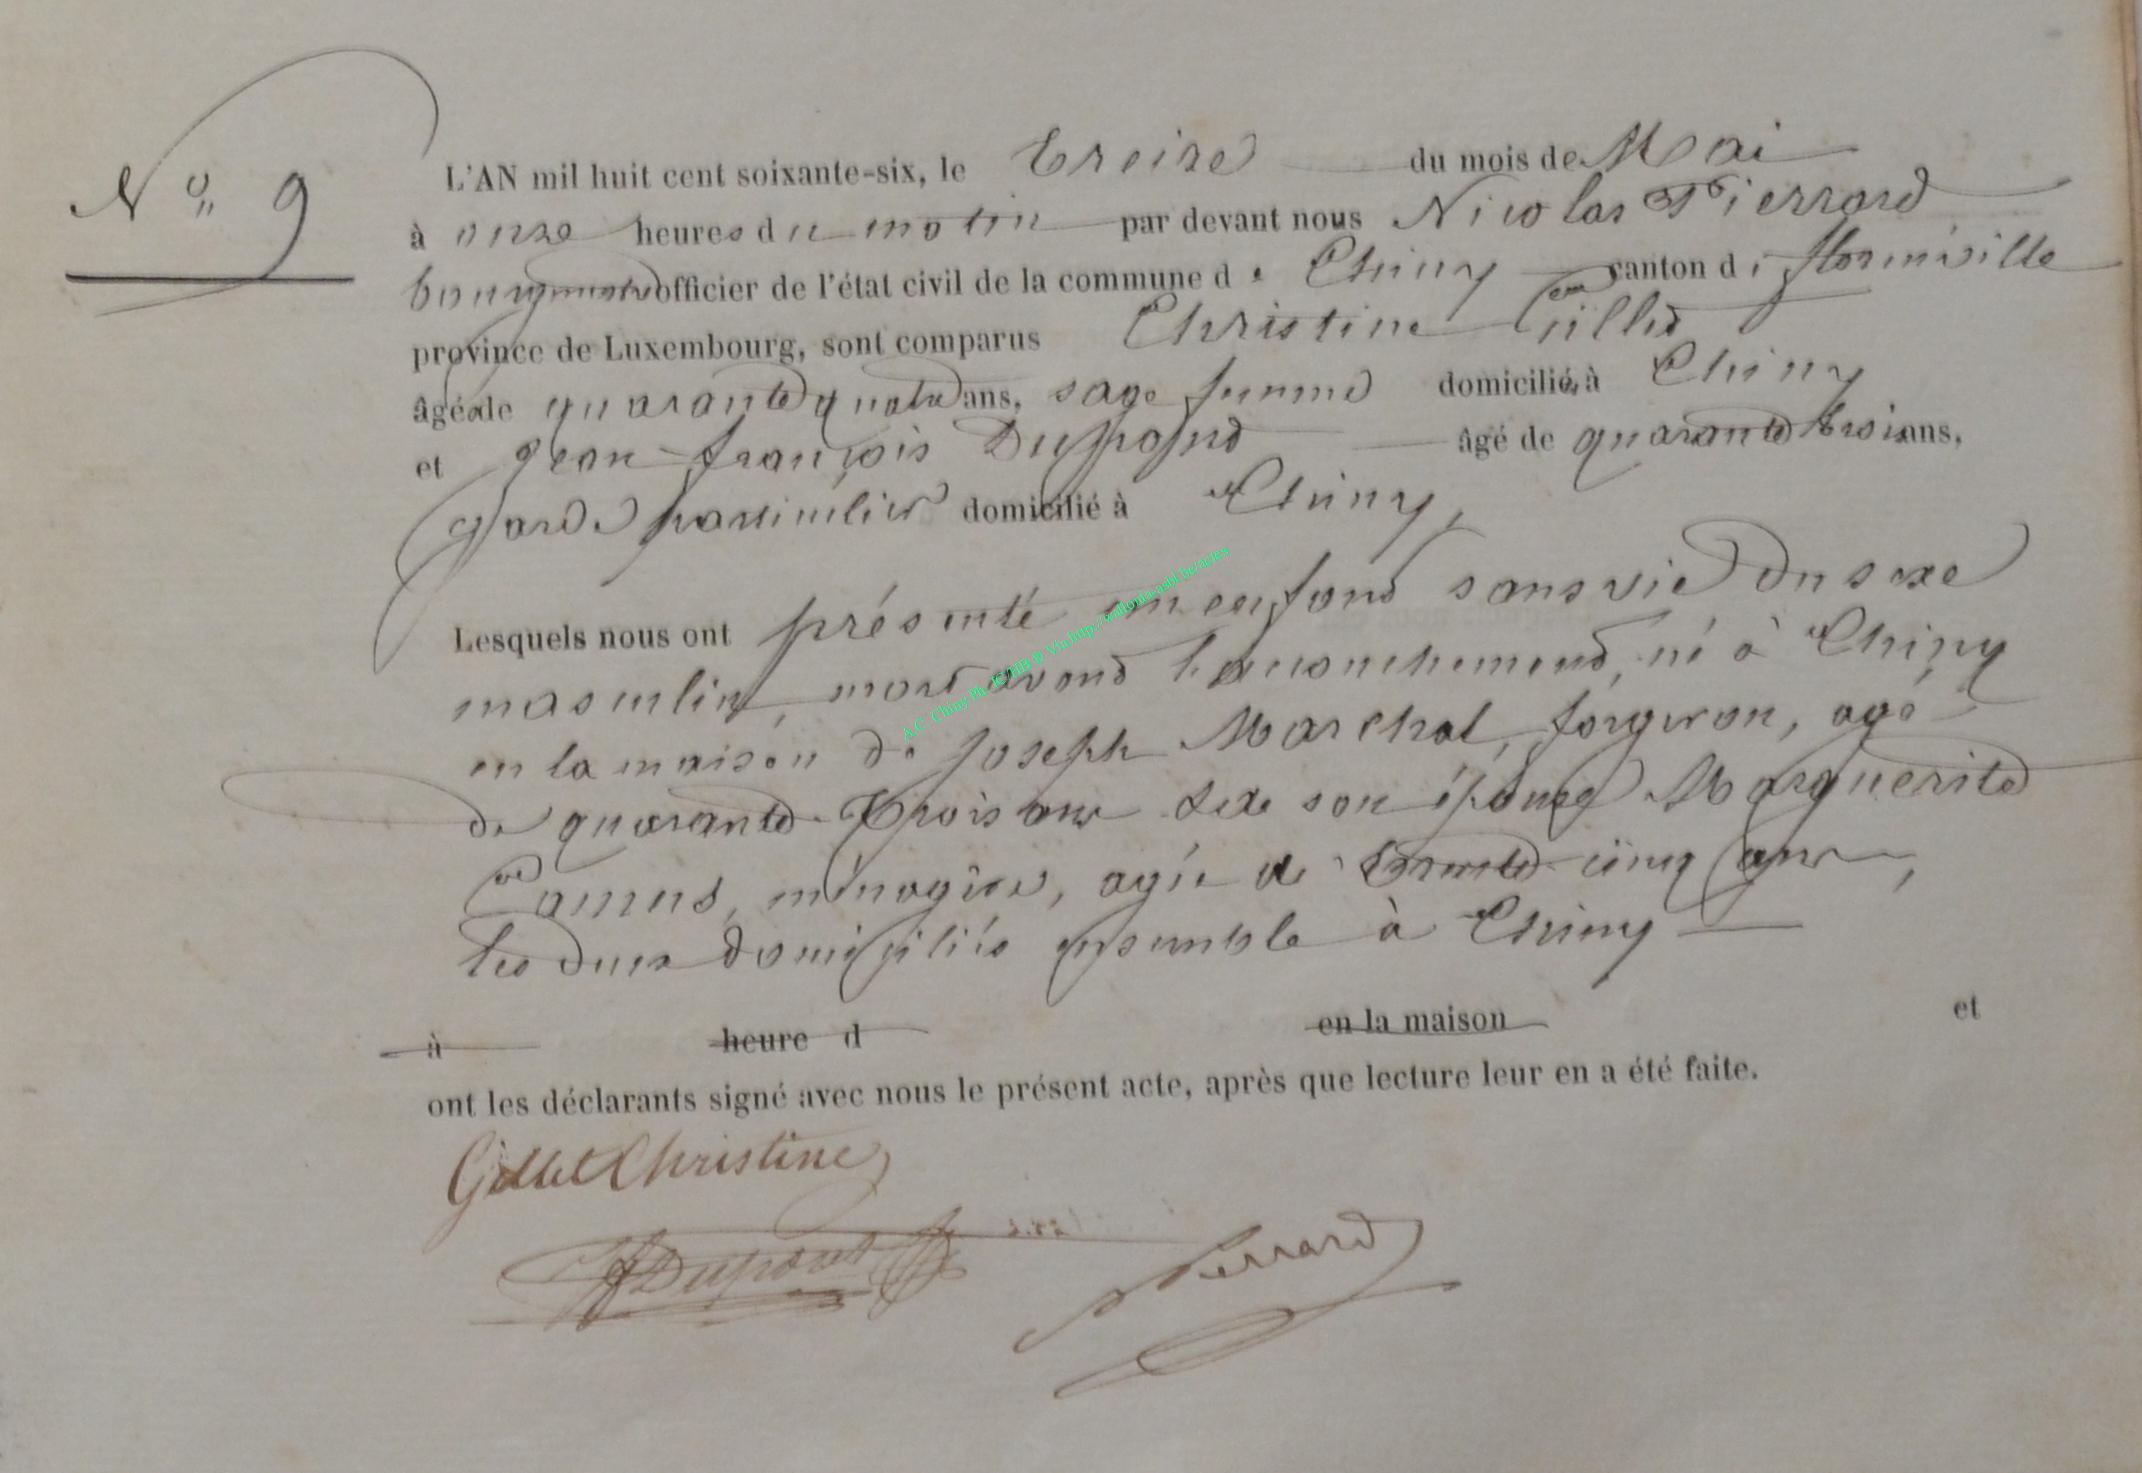 N° 9
L'AN mil huit cent soixante-six, le treize du mois de Mai
à onze heures du matin par devant nous Nicolas Pierrard
bourgmestre officier de l'état civil de la commune de Chiny canton de florenville
province de Luxembourg, sont comparus Christine Gillet
âgée de quarante quatre ans, sage femme domiciliée à Chiny
et Jean françois Dupond âgé de quarante trois ans,
garde particulier domicilié à Chiny,
Lesquels nous ont présenté un enfand sans vie du sexe
masculin, mort avand l'accouchemend, né à Chiny
en la maison de Joseph Marchal, forgeron, agé
de quarante trois ans et de son épouse Marguerite
Camus, ménagère, agée de trente cinq ans,
les deux domiciliés ensemble à Chiny
à heure d en la maison et
ont les déclarants signé avec nous le présent acte, après que lecture leur en a été faite.
Gillet Christine
Dupont
Pierrard
A.C. Chiny Ph. IC/HB ® Via http://wallonia-asbl.be/actes